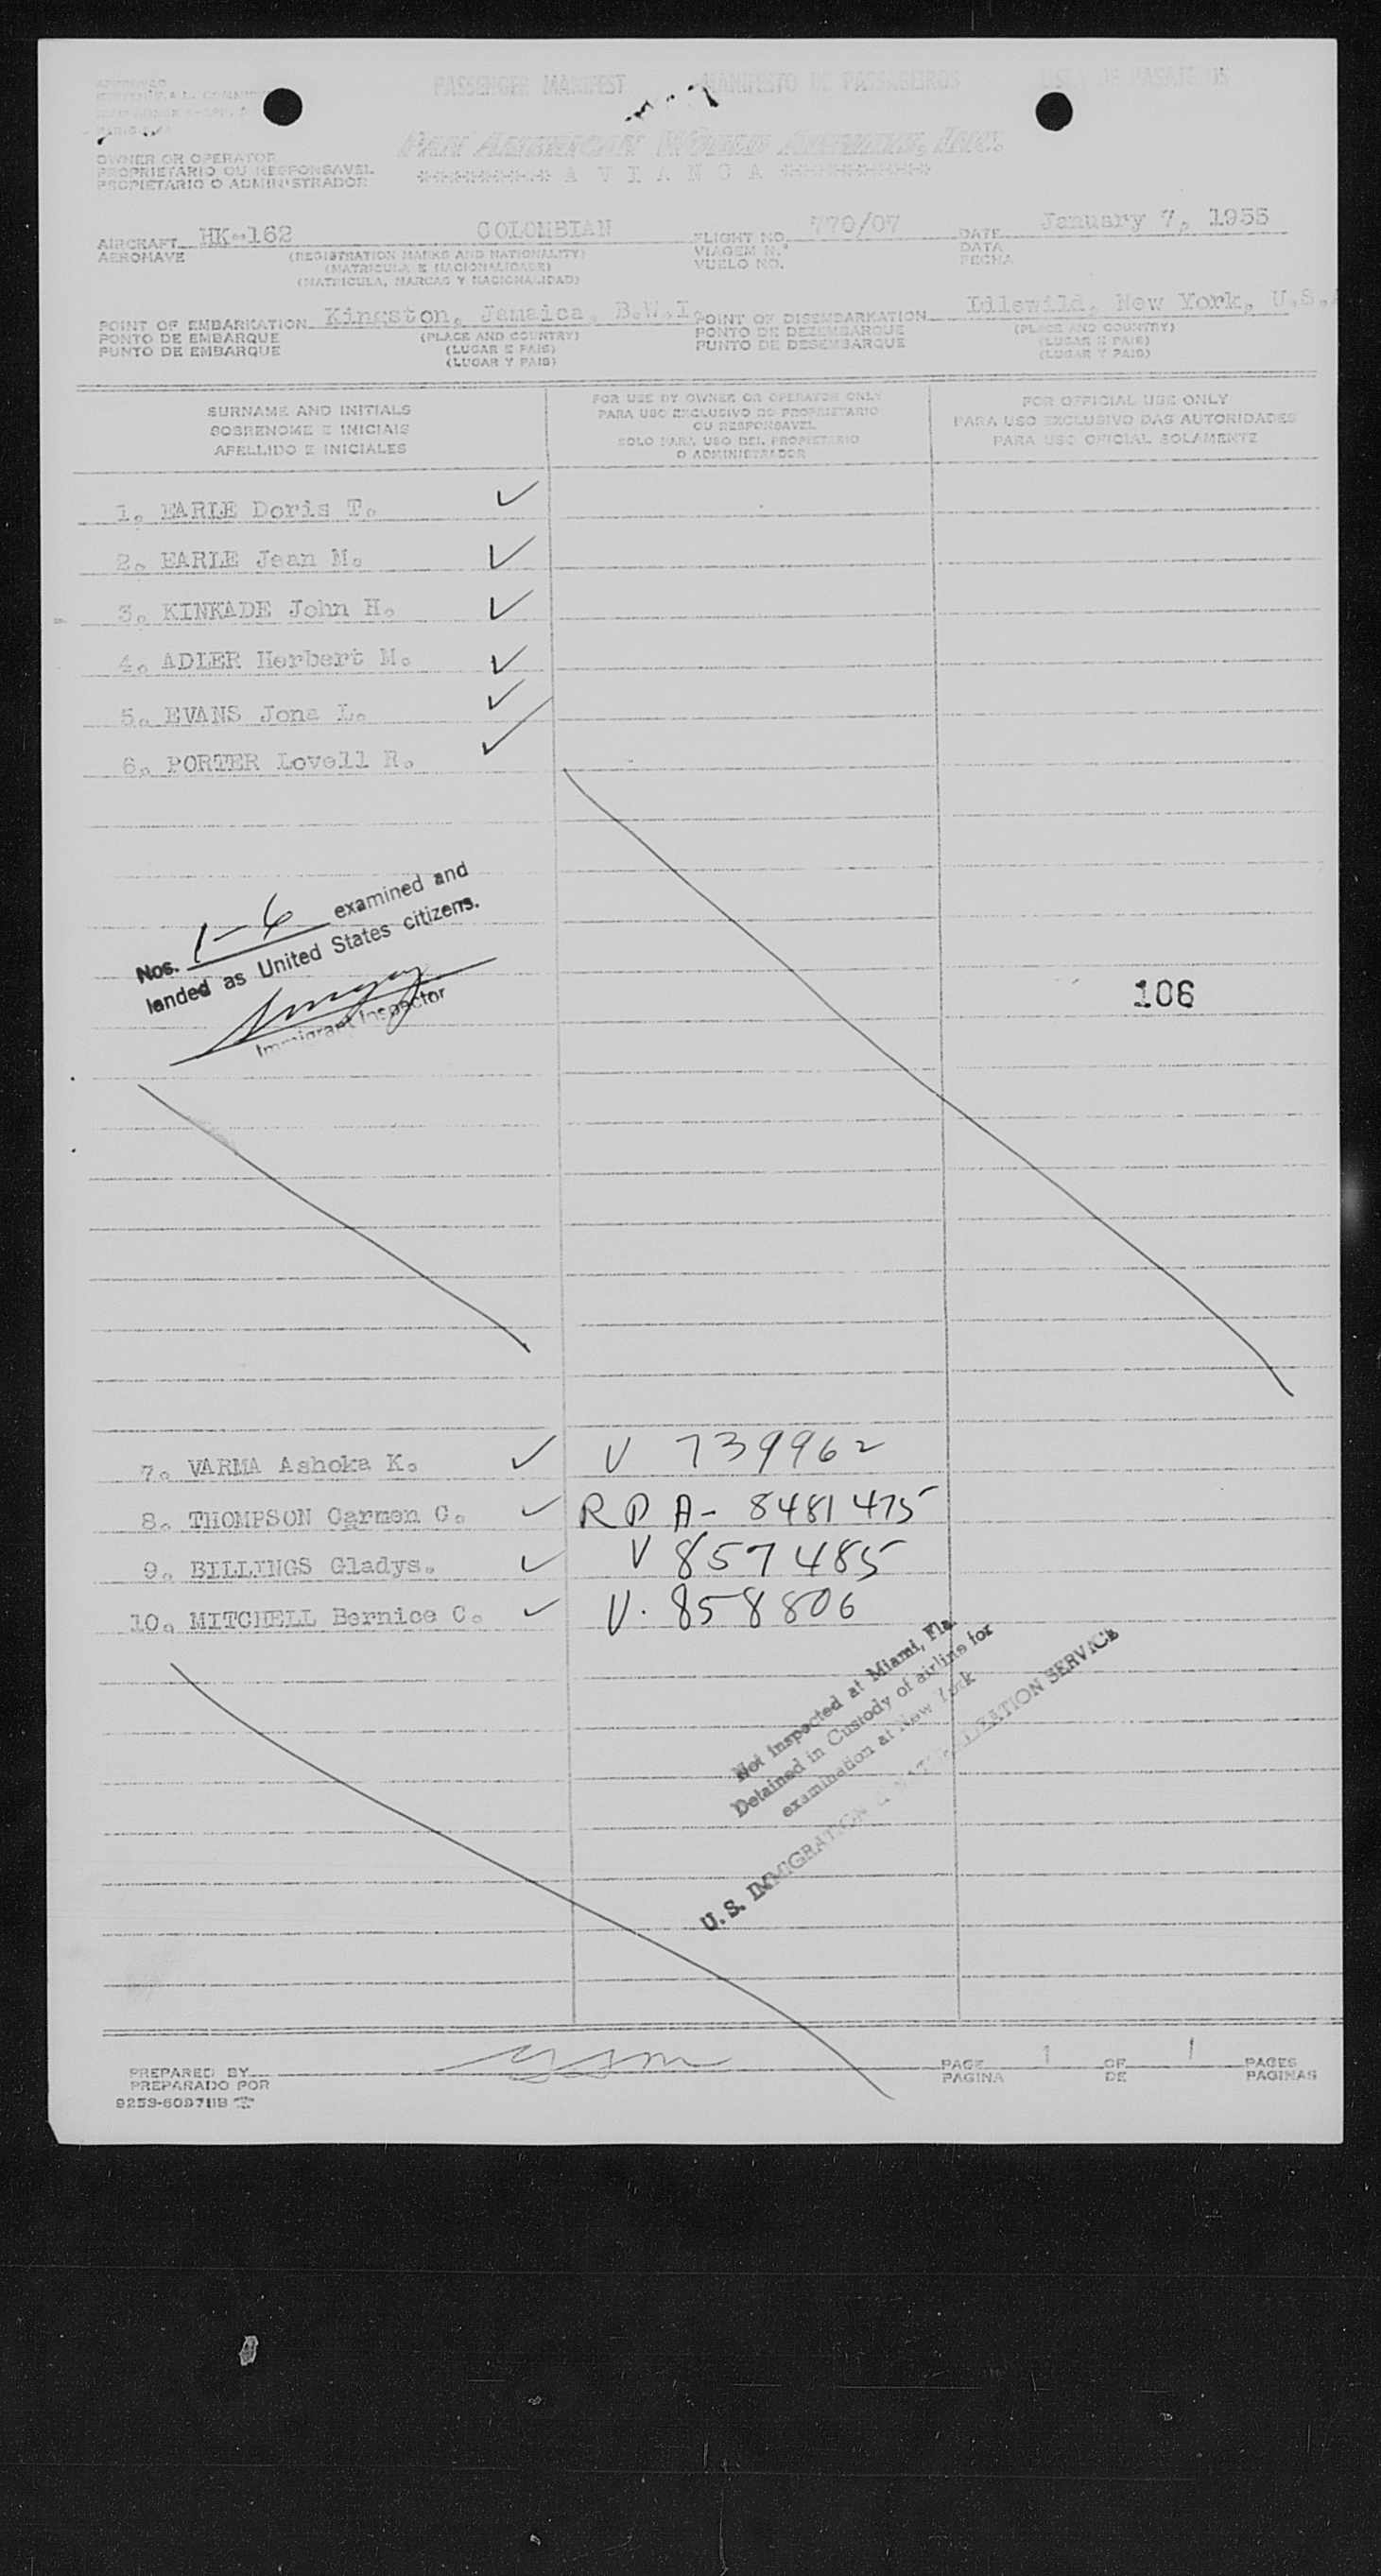 PASSENGER MANIFEST MANIFESTO DE PASSAGEIROS LISTA DE PASAJEROS
PAN AMERICAN WORLD AIRWAYS, INC.
********* A V I A N C A **********
OWNER OR OPERATOR
PROPRIETARIO OU RESPONSAVEL
PROPIETARIO O ADMINISTRADOR
AIRCRAFT HK-162 COLOMBIAN FLIGHT NO. 770/07 DATE January 7, 1955
AERONAVE (REGISTRATION MARKS AND NATIONALITY) VIAGEM N.º DATA
(MATRICULA E NACIONALIDADE) VUELO NO. FECHA
(MATRICULA, MARCAS Y NACIONALIDAD)
POINT OF EMBARKATION Kingston, Jamaica, B.W.I. POINT OF DISEMBARKATION Idlewild, New York, U.S.A
PONTO DE EMBARQUE (PLACE AND COUNTRY) PONTO DE DEZEMBARQUE (PLACE AND COUNTRY)
PUNTO DE EMBARQUE (LUGAR E PAIS) PUNTO DE DESEMBARQUE (LUGAR E PAIS)
(LUGAR Y PAIS) (LUGAR Y PAIS)
SURNAME AND INITIALS FOR USE BY OWNER OR OPERATOR ONLY FOR OFFICIAL USE ONLY
SOBRENOME E INICIAIS PARA USO EXCLUSIVO DO PROPRIETARIO PARA USO EXCLUSIVO DAS AUTORIDADES
APELLIDO E INICIALES OU RESPONSAVEL PARA USO OFICIAL SOLAMENTE
SOLO PARA USO DEL PROPIETARIO
O ADMINISTRADOR
1. EARLE Doris T. ✓
2. EARLE Jean M. ✓
3. KINKADE John H. ✓
4. ADLER Herbert M. ✓
5. EVANS Jone L. ✓
6. PORTER Lovell R. ✓
Nos. 1-6 examined and
landed as United States citizens.
Immigrant Inspector
106
7. VARMA Ashoka K. ✓ V 739962
8. THOMPSON Carmen C. ✓ R P A- 8481475
9. BILLINGS Gladys. ✓ V 857485
10. MITCHELL Bernice C. ✓ V. 858806
Not inspected at Miami, Fla.
Detained in Custody of airline for
examination at New York
U. S. IMMIGRATION & NATURALIZATION SERVICE
PREPARED BY PAGE 1 OF 1 PAGES
PREPARADO POR PAGINA DE PAGINAS